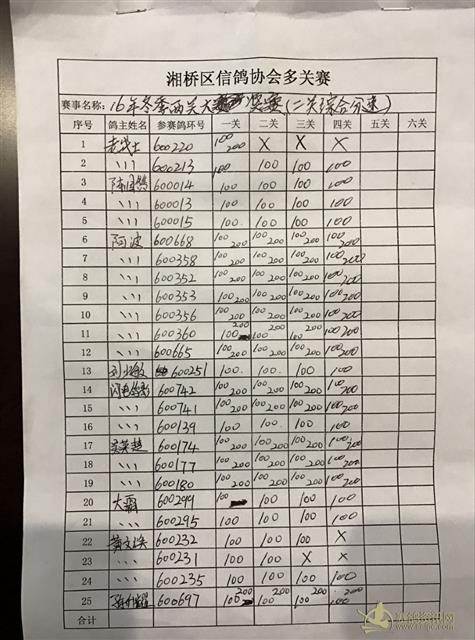 湘桥区信鸽协会多关赛
赛事名称: 16年冬季两关大奖赛(二关综合分速)
序号 鸽主姓名 参赛鸽环号 一关 二关 三关 四关 五关 六关
1 600220 100 200 X X X
2 〃 600213 100 100 100 100
3 600014 100 100 100 100
4 〃 600013 100 100 100 100
5 〃 600015 100 100 100 100
6 阿波 600668 100 200 100 200 100 200 100 200
7 〃 600358 100 200 100 200 100 200 100 200
8 〃 600352 100 200 100 200 100 200 100 200
9 〃 600353 100 200 100 200 100 200 100 200
10 〃 600356 100 200 100 200 100 200 100 200
11 〃 600360 100 200 100 200 100 200 100 200
12 〃 600665 100 200 100 200 100 200 100 200
13 600251 100 100 100 100
14 600742 100 200 100 200 100 200 100 200
15 〃 600741 100 200 100 200 100 200 100 200
16 〃 600139 100 100 100 100
17 600174 100 200 100 200 100 200 100 200
18 〃 600177 100 200 100 200 100 200 100 200
19 〃 600180 100 200 100 200 100 200 100 200
20 大霸 600299 100 100 100 100
21 〃 600295 100 100 100 100
22 600232 100 100 100 X
23 〃 600231 100 100 X X
24 〃 600235 100 100 100 100
25 600697 100 200 100 200 100 200 100 200
合计